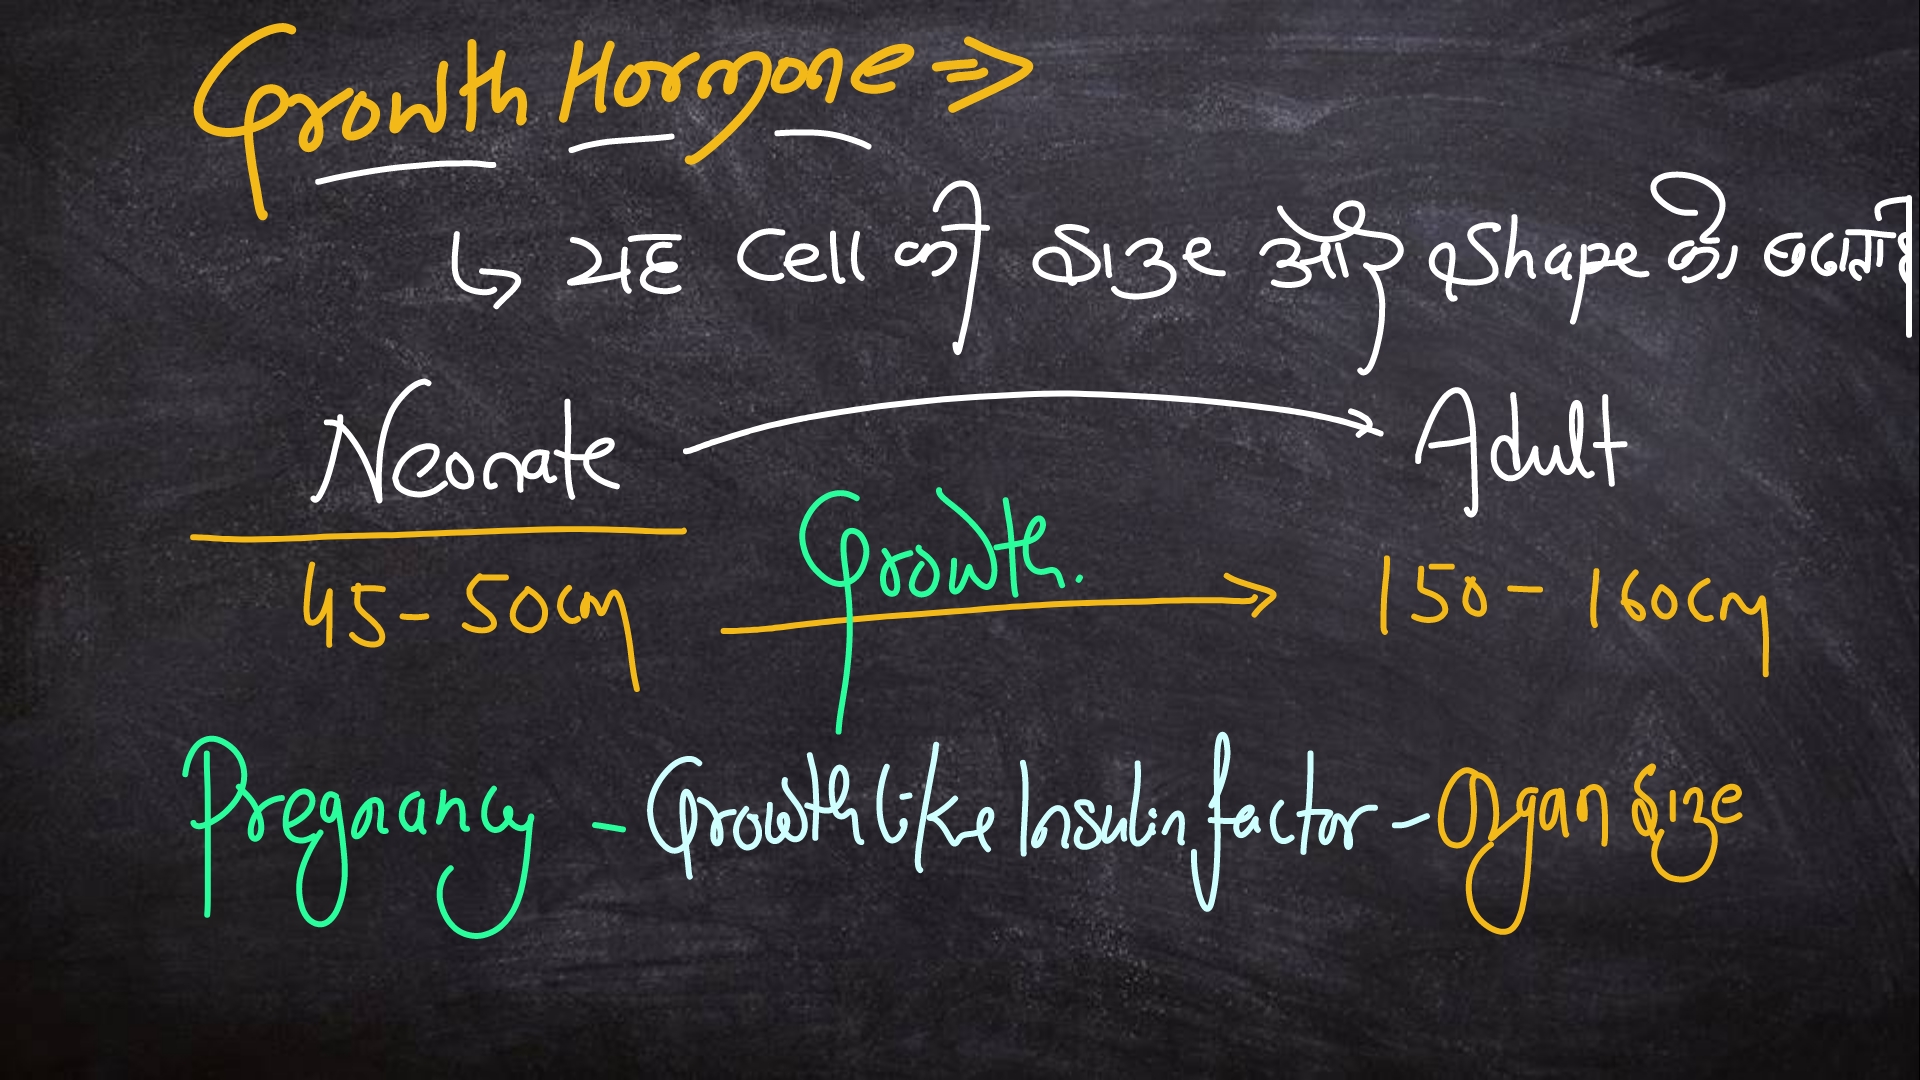 Growth Hormone ⇒
↳ यह Cell की Size और Shape को बढ़ाता है
Neonate → Adult
45-50cm Growth. → 150-160cm
Pregnancy - Growth like Insulin factor - Organ Size